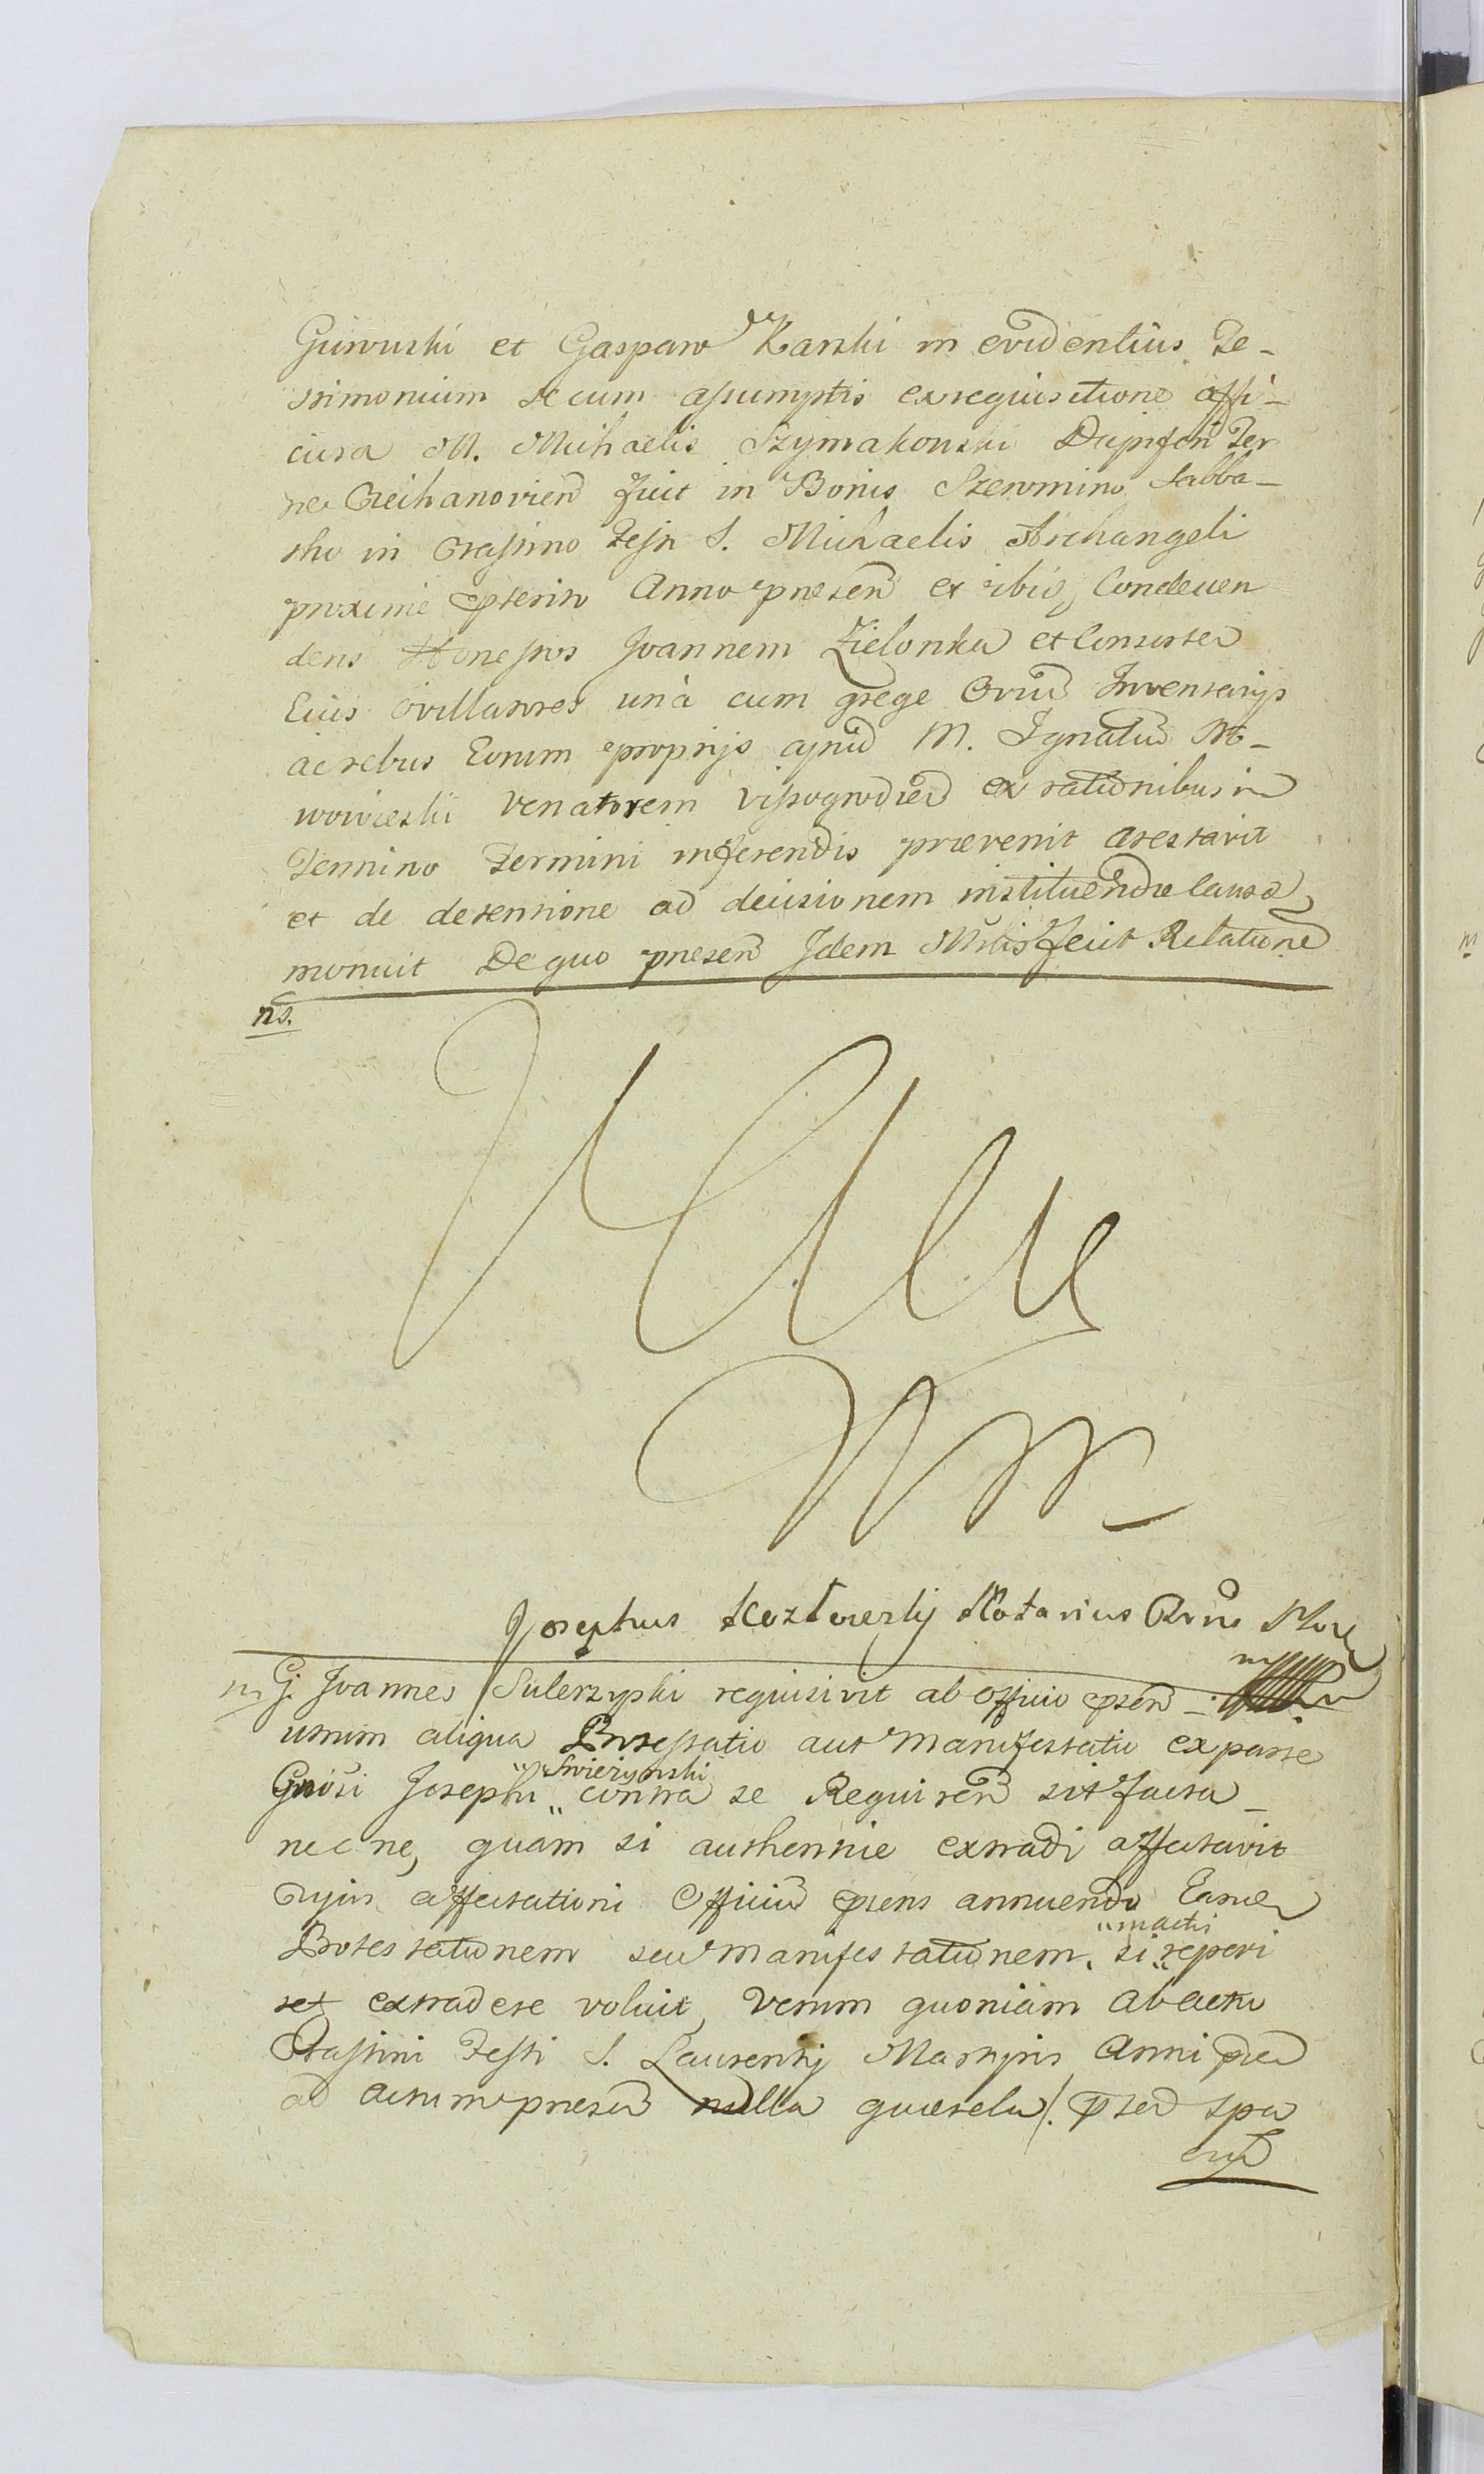 Gurowski et Gasparo Karski in evidentius Te-
stimonium secum assumptis ex requisitione offi-
ciosa M. Michaelis Szymakowski Dapiferi Ter
rae Ciechanovien fuit in Bonis Szeromino Sabba-
tho in Crastino Festi S. Michaelis Archangeli
proxime pterito Anno presen et ibid, Condescen
dens Honestos Joannem Zielonka et Consorte
Eius ovillatores unà cum grege Oviu Inventarijs
ac rebus Eorum proprijs apud M. Ignatiu No-
wowieskii Venatorem Vissogrodien ex rationibus in
Termino Termini inferendis praevenit arestavit
et de detensione ad decisionem instituendae Causae
monuit De quo presen Idem Mtlis fecit Relatione
ns.
Josephus Kozłowski Notarius
G. Joannes Sulerzyski requisivit ab officio psen-
utrum aliqua Protestatio aut Manifestatio ex parte
Gnosi Josephi " Swierzynski " contra se Requiren sit facta
nec ne, quam si authentice extradi affectavit
cujus affectationi Officiu psens annuendo Eame
Protestationem seu Manifestationem, si " in actis " reperi
ret extradere voluit, verum quoniam ab actu
Crastini Festi S. Laurentij Martyris Anni psen
ad actum presen nulla quaerela /. psed spa